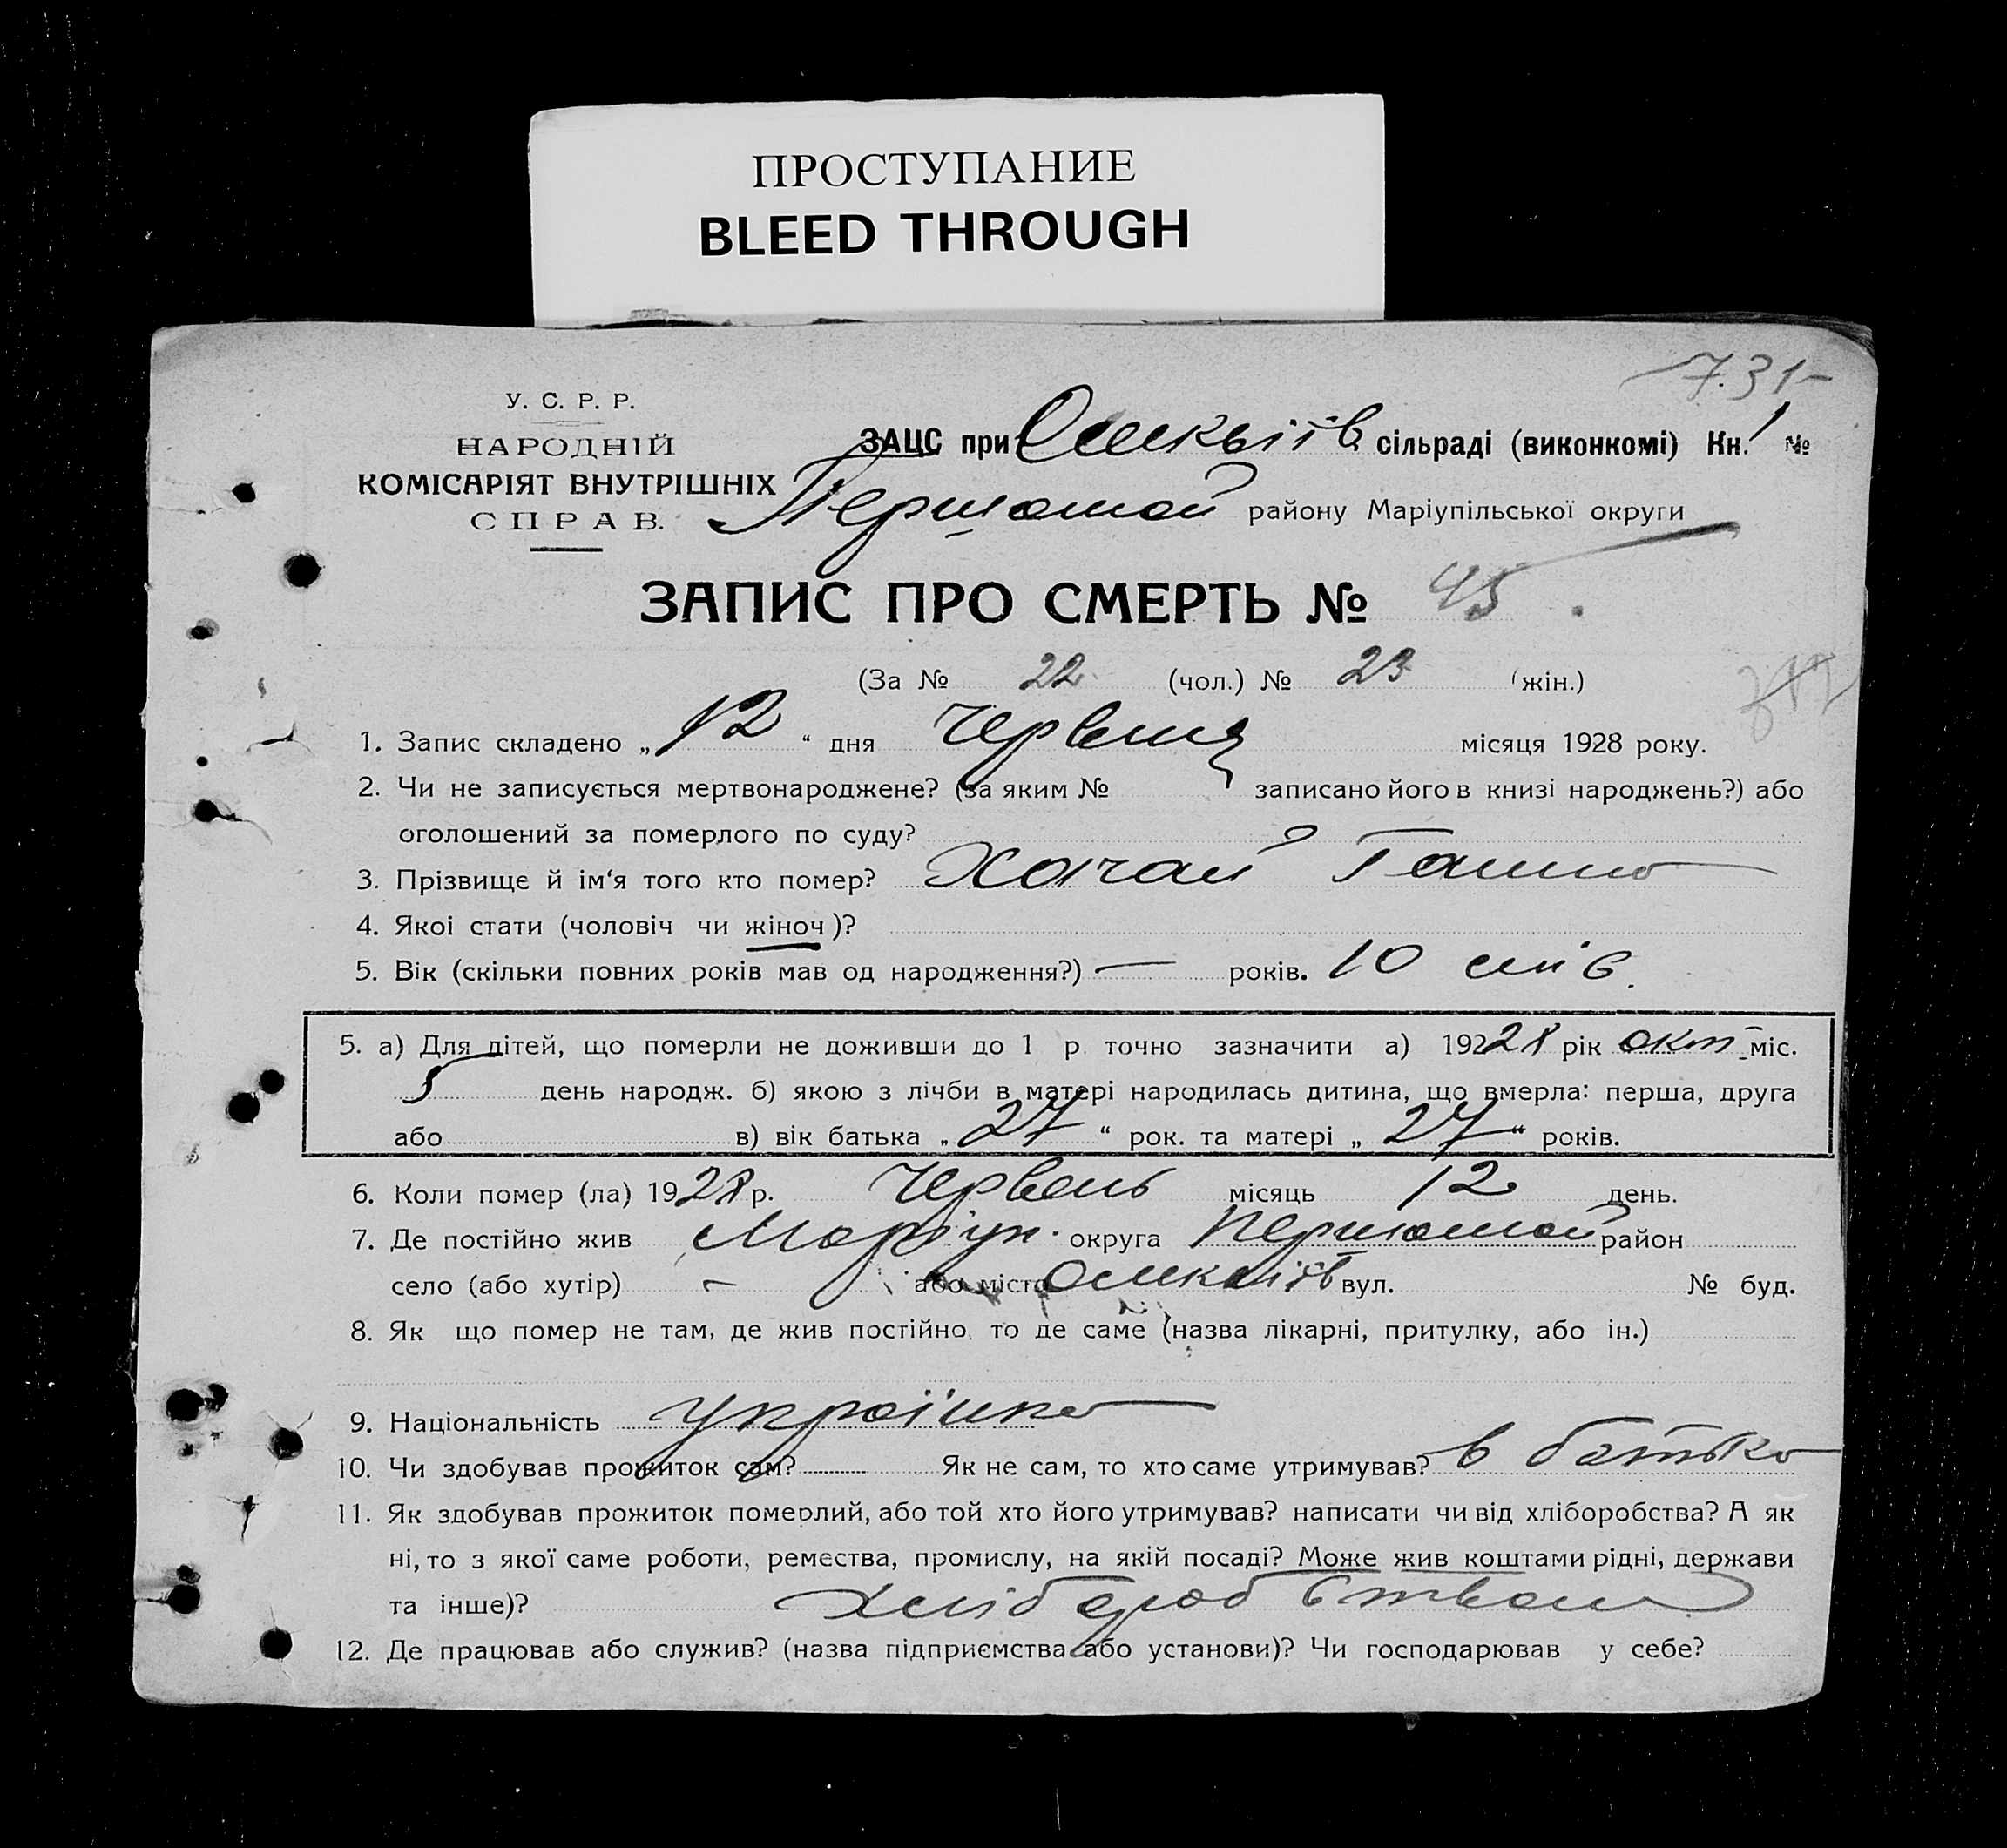 ПРОСТУПАНИЕ
BLEED THROUGH
7.31-
У. С. Р. Р.
НАРОДНІЙ
КОМІСАРІЯТ ВНУТРІШНІХ
СПРАВ.
ЗАЦС при сільраді (виконкомі) Кн. 1 №
Першомай району Маріупільської округи
ЗАПИС ПРО СМЕРТЬ № 45
(За № 22 (чол.) № 23 (жін.)
1. Запис складено „ 12 “ дня червня місяця 1928 року.
2. Чи не записується мертвонароджене? (за яким № записано його в книзі народжень?) або
оголошений за померлого по суду?
3. Прізвище й ім‘я того кто помер? Хачай Ганна
4. Якоі стати (чоловіч чи жіноч)?
5. Вік (скільки повних років мав од народження?) — років. 10
5. а) Для дітей, що померли не доживши до 1 р. точно зазначити а) 19228 рік окт міс.
5 день народж. б) якою з лічби в матері народилась дитина, що вмерла: перша, друга
або в) вік батька „ 27 “ рок. та матері „ 27 “ років.
6. Коли помер (ла) 1928 р. червень місяць 12 день.
7. Де постійно жив Маріуп. округа Першомай район
село (або хутір) — або місто вул. № буд.
8. Як що помер не там, де жив постійно, то де саме (назва лікарні, притулку, або ін.)
9. Національність українка
10. Чи здобував прожиток сам? Як не сам, то хто саме утримував? в батька
11. Як здобував прожиток померлий, або той хто його утримував? написати чи від хліборобства? А як
ні, то з якої саме роботи, ремества, промислу, на якій посаді? Може жив коштами рідні, держави
та інше)? хліборобством
12. Де працював або служив? (назва підприємства або установи)? Чи господарював у себе?